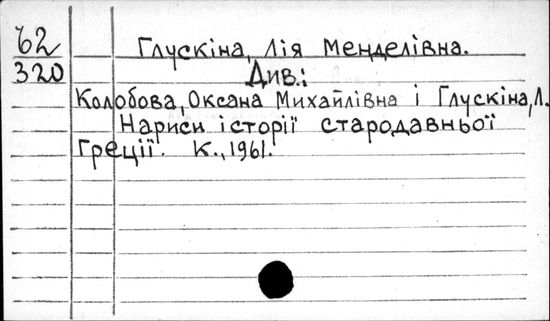 62
320
Глускіна, Лія Менделівна.
Див.:
Колобова, Оксана Михайлівна і Глускіна, Л.
Нариси історії стародавньої
Греції. К., 1961.